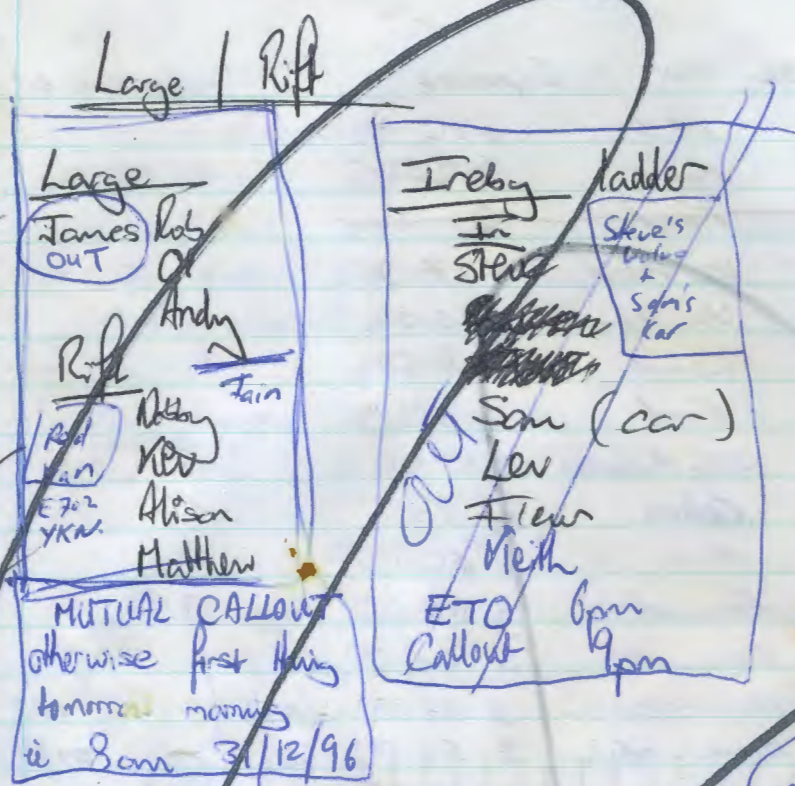 Large / Rift
Large
James Rob
OUT Ol
Andy
Iain
Rift
Nobby
Red Kev
Van
E702 Alison
YKN.
Matthew
MUTUAL CALLOUT
otherwise first thing
tomorrow morning
ie 8am 31/12/96
Ireby ladder
In
Steve
Steve's
Volvo
+
Sam's
Kar
Sam (car)
Lev
Fleur
Keith
OUT
ETO 6pm
Callout 9pm